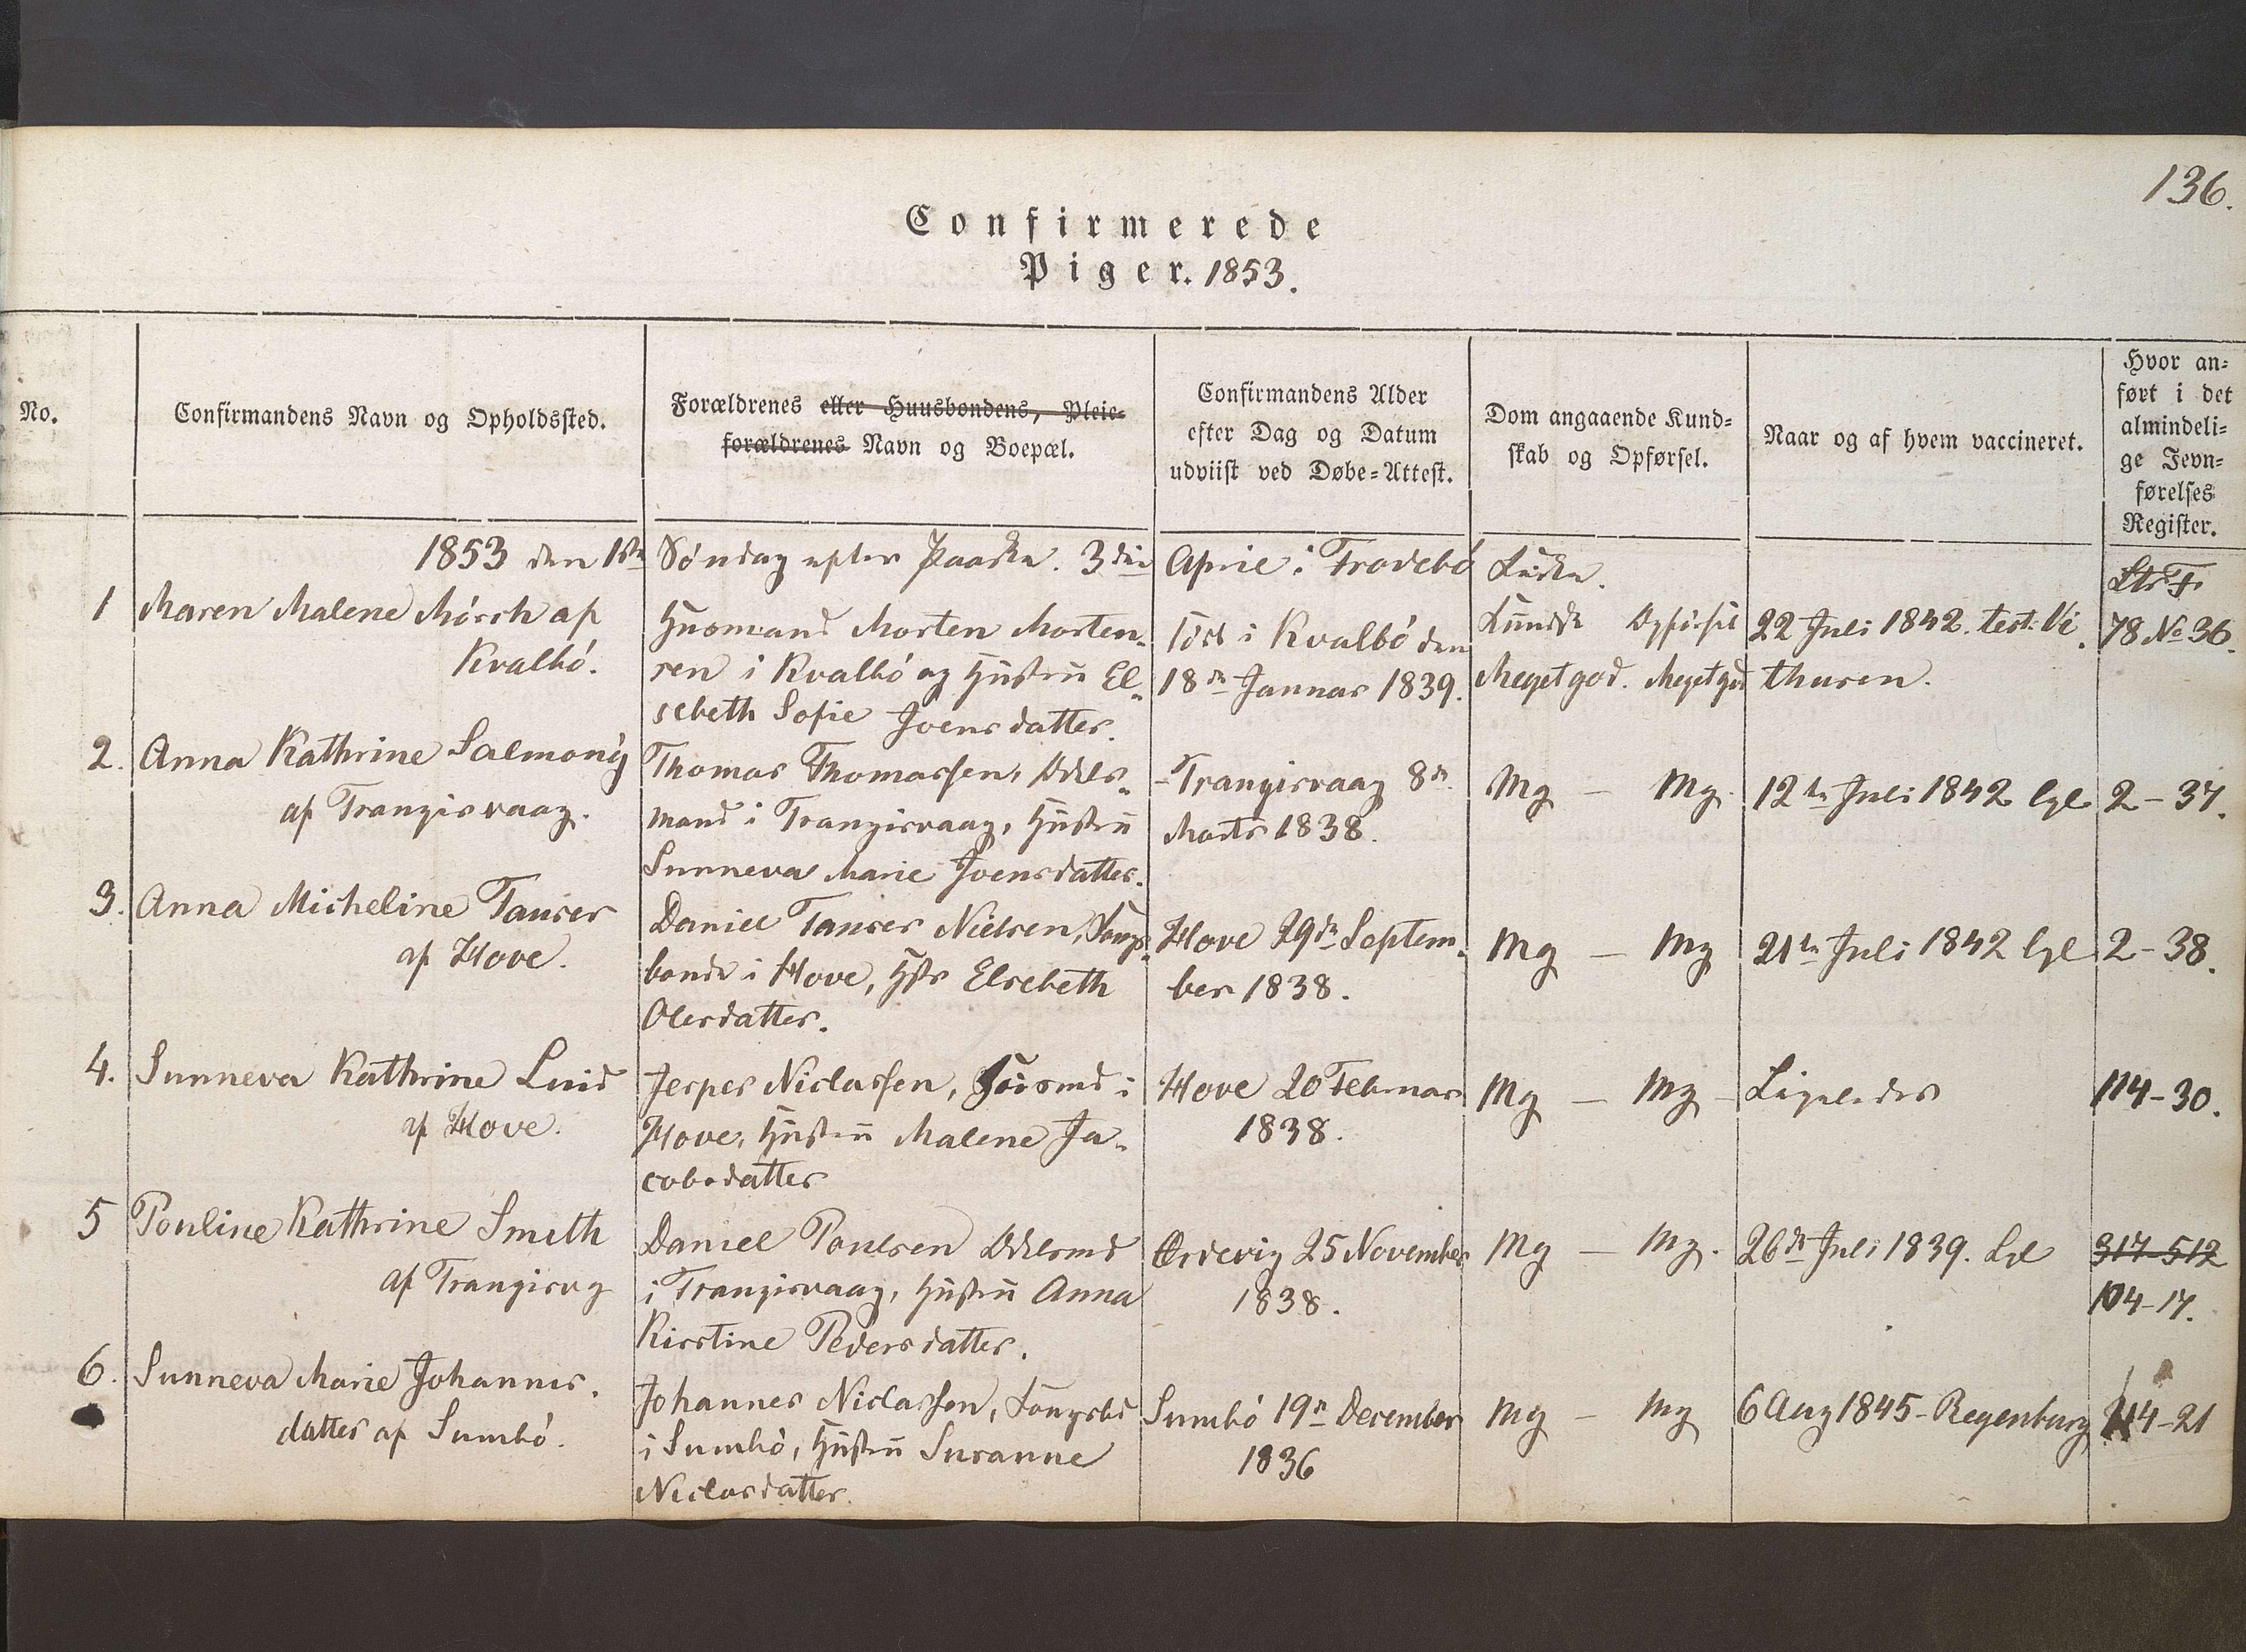 136.
Confirmerede
Piger. 1853.
No.
Confirmandens Navn og Opholdssted.
Forældrenes eller Huusbondens, Pleie=
forældrenes Navn og Boepæl.
Confirmandens Alder
efter Dag og Datum
udviist ved Døbe=Attest.
Dom angaaende Kund=
skab og Opførsel.
Naar og af hvem vaccineret.
Hvor an=
ført i det
almindeli=
ge Jevn=
førelses
Register.
1853 den 1ste Søndag efter Paaske. 3die April i Frodebø Kirke.
1 Maren Malene Mørch af
Kvalbø.
Husmand Morten Morten-
sen i Kvalbø og Hustru El-
sebeth Sofie Joensdatter.
Født i Kvalbø den
18de Januar 1839.
Kundsk Opførsel
Meget god. Meget god
22 Juli 1842. test. Vi
thusen.
78 No 36.
2. Anna Kathrine Salmony
af Trangisvaag.
Thomas Thomassen, Odels-
mand i Trangisvaag, Hustru
Sunneva Marie Joensdatter.
- Trangisvaag 8de
Marts 1838.
Mg - Mg.
12te Juli 1842 lgl
2-37.
3. Anna Micheline Tauser
af Hove.
Daniel Tauser Nielsen, Kongs-
bonde i Hove, Hstr Elsebeth
Olesdatter.
Hove 29de Septem-
ber 1838.
Mg - Mg
21te Juli 1842 lgl
2-38.
4. Sunneva Kathrine Luid
af Hove.
Jesper Niclassen, i
Hove, Hustru Malene Ja-
cobsdatter
Hove 20 Februar
1838.
Mg - Mg -
Ligeledes
114-30.
5 Pouline Kathrine Smith
af Trangisvg
Daniel Poulsen Odelsmd
i Trangisvaag, Hustru Anna
Kirstine Pedersdatter.
Ørdevig 25 November
1838.
Mg - Mg.
26de Juli 1839. Lgl
317-512
104-17.
6. Sunneva Marie Johannes-
datter af Sumbø.
Johannes Niclassen, Kongsbd
i Sumbø, Hustru Susanne
Niclasdatter.
Sumbø 19de December
1836
Mg - Mg
6 Aug 1845 - Regenburg
114-21